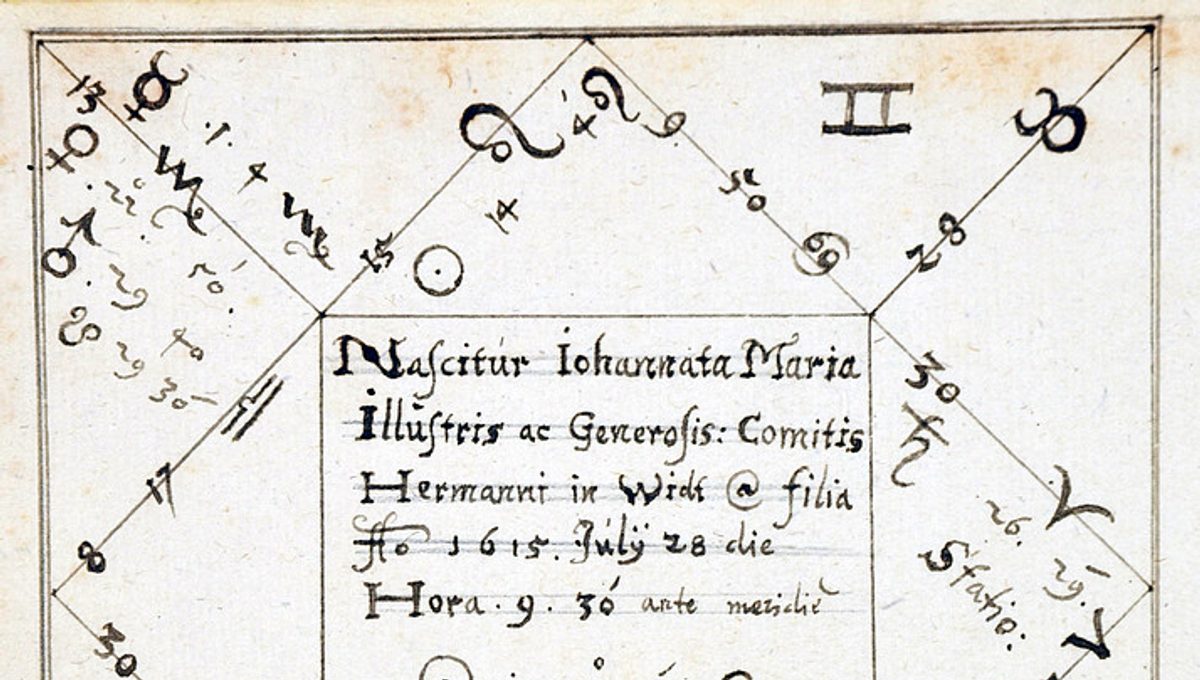 13 ☿ ♍ .1. 4 ♍
♀ . 22 .
♂ . 29 40
29 30
♌ 4 ♌ 9
15 ☉ 14
♊
50 ♋
♉
28
Naſcitur Iohannata Maria
Illuſtris ac Generoſis: Comitis
Hermanni in Widt @ filia
1615. Julÿ 28 die
Hora . 9 . 30 ante meridiē
30 ♄
26. 29.
Statio:
♈
17
8
30